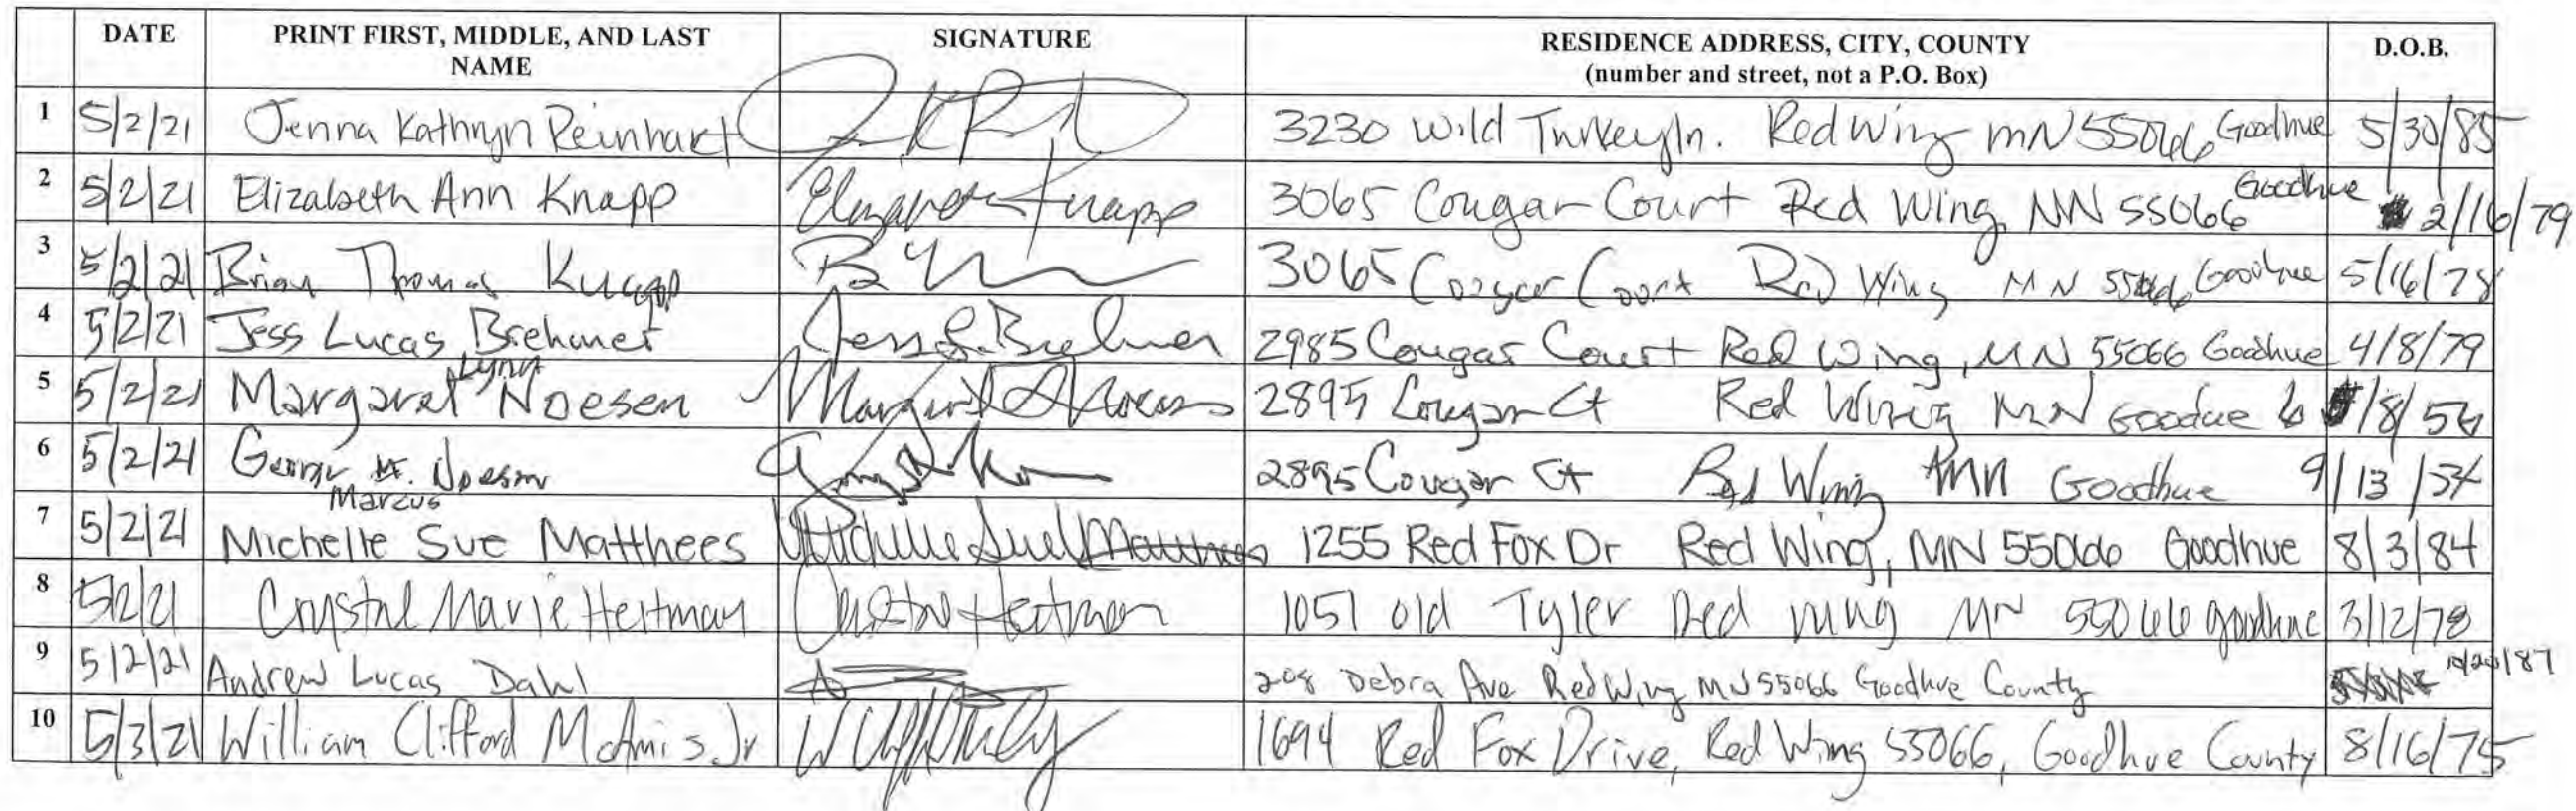 DATE PRINT FIRST, MIDDLE, AND LAST NAME SIGNATURE RESIDENCE ADDRESS, CITY, COUNTY (number and street, not a P.O. Box) D.O.B.
1 5/2/21 Jenna Kathryn Reinhart 3230 Wild Turkey ln. Red Wing mN 55066 Goodhue 5/30/85
2 5/2/21 Elizabeth Ann Knapp Elizabeth Knapp 3065 Cougar Court Red Wing, MN 55066 Goodhue 2/16/79
3 5/2/21 Brian Thomas Knapp 3065 Cougar Court Red Wing MN 55066 Goodhue 5/16/78
4 5/2/21 Jess Lucas Brehmer Jess L. Brehmer 2985 Cougar Court Red Wing, MN 55066 Goodhue 4/8/79
5 5/2/21 Margaret Lynn Noesen Margaret L Noesen 2895 Cougar Ct Red Wing MN Goodue 6/8/56
6 5/2/21 George M. Noesen Marcus 2895 Cougar Ct Red Wing MN Goodhue 9/13/54
7 5/2/21 Michelle Sue Matthees Michelle Sue Matthees 1255 Red Fox Dr Red Wing, MN 55066 Goodhue 8/3/84
8 5/2/21 Crystal Marie Heitman Crystal Heitman 1051 old Tyler Red wing MN 55066 goodhue 3/12/78
9 5/2/21 Andrew Lucas Dahl 208 Debra Ave Red Wing MN 55066 Goodhue County
10 5/3/21 William Clifford McAmis Jr 1694 Red Fox Drive, Red Wing 55066, Goodhue County 8/16/75